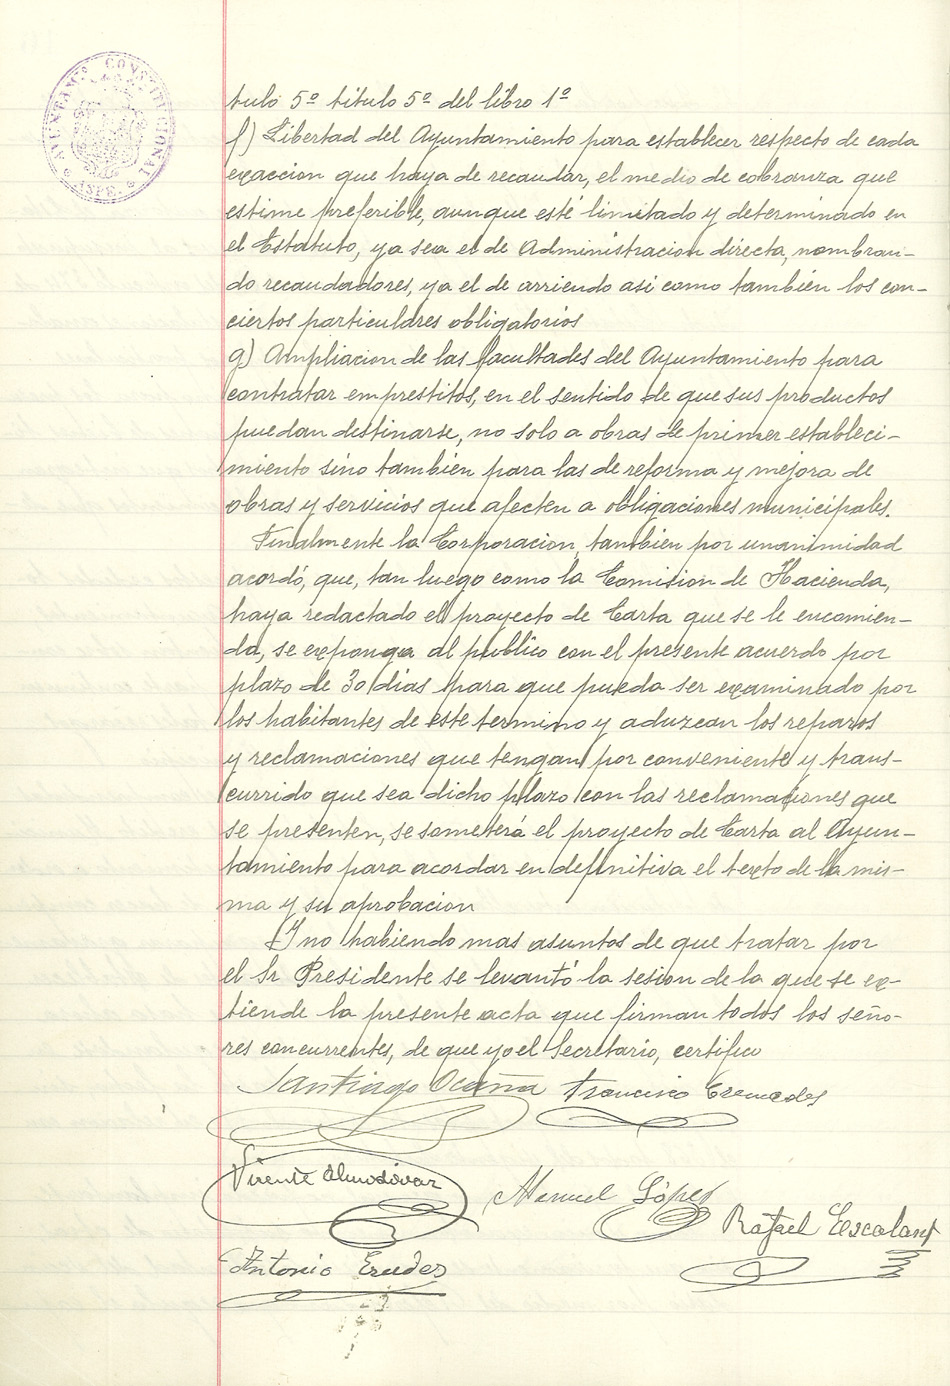 AYUNTAMTO CONSTITUCIONAL
ASPE.
tulo 5º titulo 5º del libro 1º
f) Libertad del Ayuntamiento para establecer respecto de cada
exaccion que haya de recaudar, el medio de cobranza que
estime preferible, aunque esté limitado y determinado en
el Estatuto, ya sea el de Administracion directa, nombran-
do recaudadores, ya el de arriendo asi como también los con-
ciertos particulares obligatorios
g) Ampliacion de las facultades del Ayuntamiento para
contratar emprestitos, en el sentido de que sus productos
puedan destinarse, no solo a obras de primer estableci-
miento sino también para las de reforma y mejora de
obras y servicios que afecten a obligaciones municipales.
Finalmente la Corporacion, tambien por unanimidad
acordó, que, tan luego como la Comision de Hacienda,
haya redactado el proyecto de Carta que se le encomien-
da, se exponga al publico con el presente acuerdo por
plazo de 30 dias para que pueda ser examinado por
los habitantes de este termino y aduzcan los reparos
y reclamaciones que tengan por conveniente y trans-
currido que sea dicho plazo con las reclamaciones que
se presenten, se someterá el proyecto de Carta al Ayun-
tamiento para acordar en definitiva el texto de la mis-
ma y su aprobacion
Y no habiendo mas asuntos de que tratar por
el Sr Presidente se levantó la sesion de la que se ex-
tiende la presente acta que firman todos los seño-
res concurrentes, de que yo el Secretario, certifico
Santiago Ocaña Francisco Cremades
Vicente Almodóvar
Manuel López
Rafael Escolant
Antonio